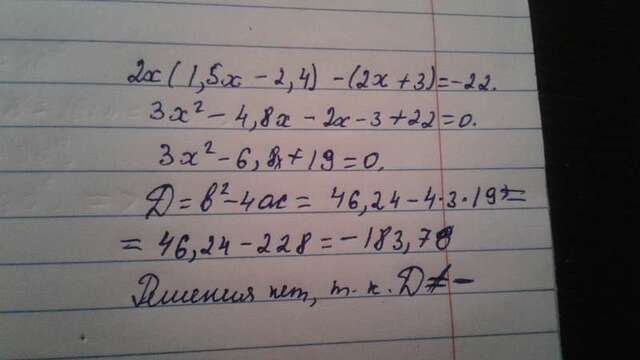 2x(1,5x - 2,4) - (2x+3)=-22.
3x² - 4,8x - 2x - 3 + 22 = 0.
3x² - 6,8x + 19 = 0.
D = b² - 4ac = 46,24 - 4·3·19 =
= 46,24 - 228 = - 183,76
Решения нет, т. к. D -